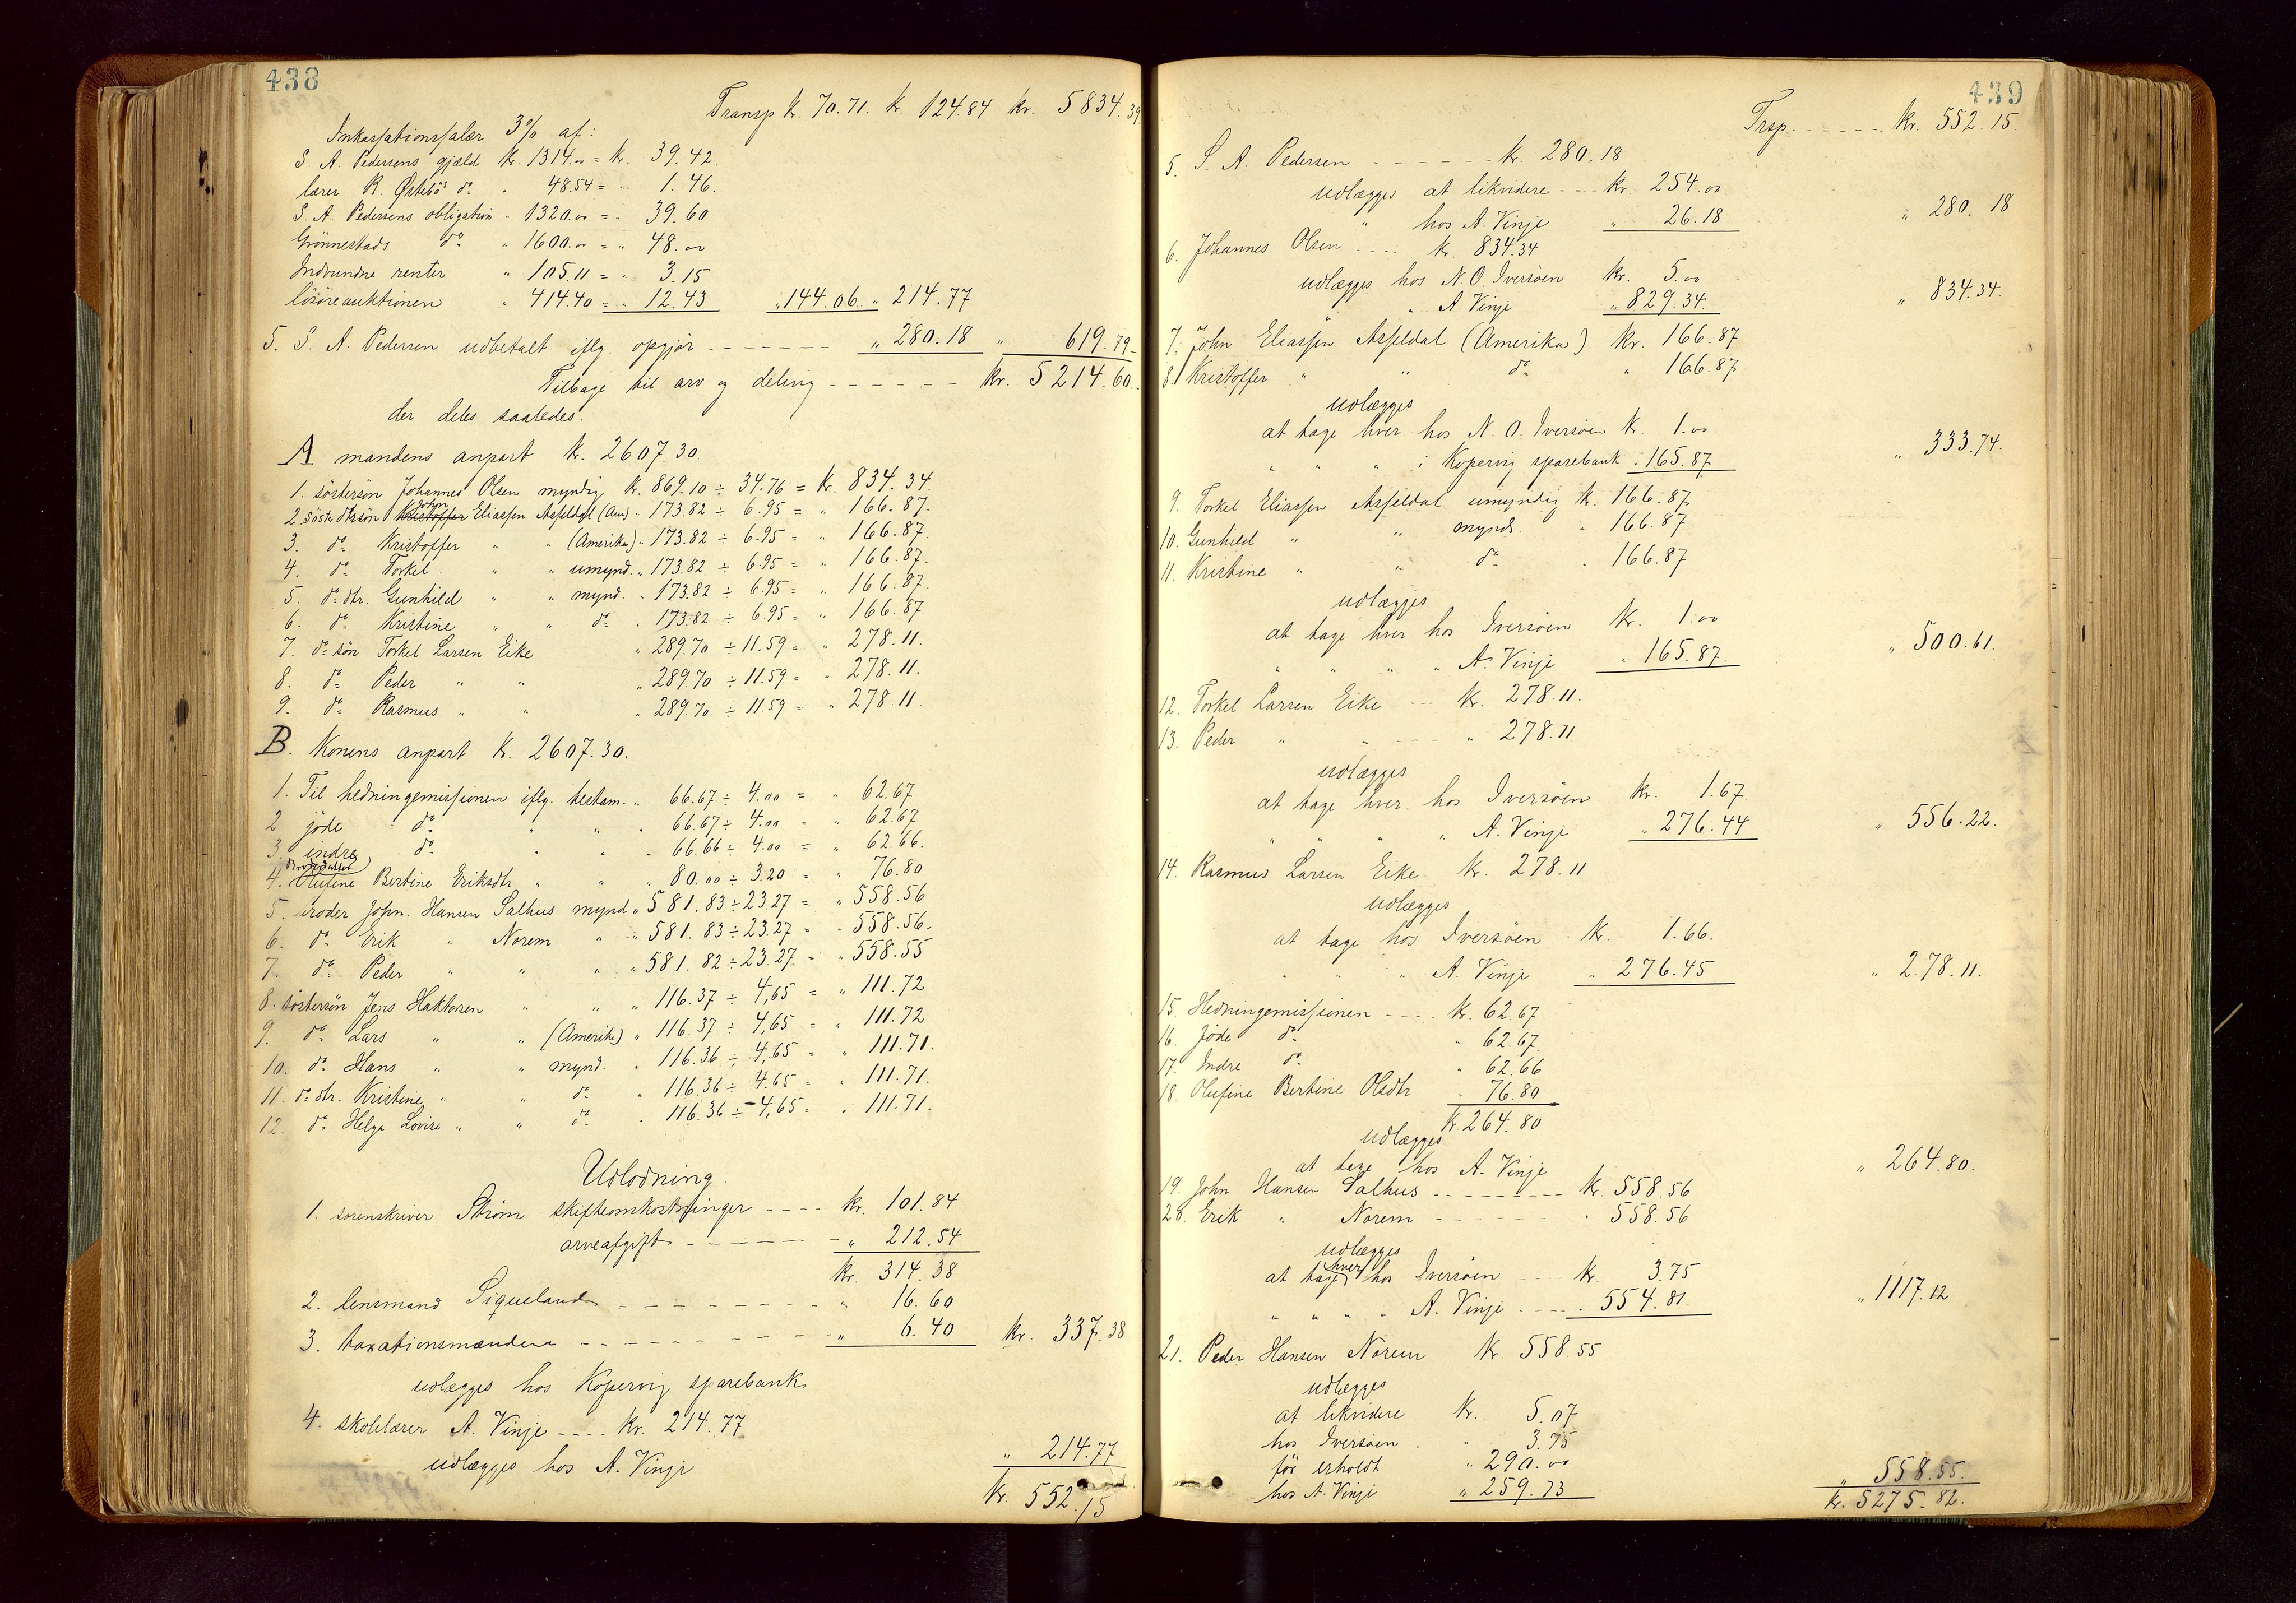 438
Transp kr. 70.71. kr. 124.84 kr. 5834.39
Inkassationssalær 3% af:
S. A. Pedersens gjæld kr. 1314.00 = kr. 39.42.
lærer R. Østebös do. " 48.54 = " 1.46.
S. A. Pedersens obligation " 1320.00 = " 39.60
Grönnestads do " 1600.00 = " 48.00
Indvundne renter " 105.11 = " 3.15
lösöreauktionen " 414.40 = " 12.43 " 144.06. " 214.77
5. S. A. Pedersen udbetalt iflg. opgjör - - - - - - " 280.18 " 619.79
Tilbage til arv og deling - - - - - - kr. 5214.60.
der deles saaledes.
A mandens anpart kr. 2607.30.
1. söstersön Johannes Olsen myndig kr. 869.10 ÷ 34.76 = kr. 834.34
2. söster dtrsön Kristoffer John Eliassen Asfeldal (Am) " 173.82 ÷ 6.95 = " 166.87.
3. do Kristoffer " " (Amerika) " 173.82 ÷ 6.95 = " 166.87.
4. do Torkel " " umynd. " 173.82 ÷ 6.95 = " 166.87.
5. do dtr. Gunhild " " mynd. " 173.82 ÷ 6.95 = " 166.87.
6. do Kristine " " do " 173.82 ÷ 6.95 = " 166.87
7. do sön Torkel Larsen Eike " 289.70 ÷ 11.59 = " 278.11.
8. do Peder " " " 289.70 ÷ 11.59 = " 278.11.
9. do Rasmus " " " 289.70 ÷ 11.59 = " 278.11.
B. Konens anpart kr. 2607.30.
1. Til hedningemissionen iflg. testam. " 66.67 ÷ 4.00 = " 62.67
2 jöde do " " " 66.67 ÷ 4.00 = " 62.67
3. indre do " " " 66.66 ÷ 4.00 = " 62.66.
4. Olufine Bertine Eriksdtr " " " 80.00 ÷ 3.20 = " 76.80
5. broder John. Hansen Salhus mynd " 581.83 ÷ 23.27 = " 558.56
6. do Erik " Norem " " 581.83 ÷ 23.27 = " 558.56.
7. do Peder " " " " 581.82 ÷ 23.27 = " 558.55
8. söstersön Jens Haktorsen " " " 116.37 ÷ 4,65 = " 111.72
9. do Lars " " (Amerika) " 116.37 ÷ 4,65 = " 111.72
10. do Hans " " mynd. " 116.36 ÷ 4,65 = " 111.71.
11. do dtr. Kristine " " do " 116.36 ÷ 4.65 = " 111.71.
12. do Helga Lovise " " do " 116.36 ÷ 4,65 = " 111.71.
Udlodning.
1. sorenskriver Strøm skifteomkostninger - - - - kr. 101.84
arveafgift - - - - - - " 212.54
kr. 314.38
2. lensmand Siqueland - - - - - - - - " 16.60
3. taxationsmændene - - - - - - - - " 6.40 kr. 337.38
udlægges hos Kopervig sparebank
4. skolelærer A. Vinje - - - - kr. 214.77
udlægges hos A. Vinje " 214.77
kr. 552.15
439
Trsp. - - - - - kr. 552.15.
5. S. A. Pedersen - - - - - - kr. 280.18
udlægges at likvidere - - - kr. 254.00
" hos A. Vinje " 26.18 " 280.18
6. Johannes Olsen - - - - kr. 834.34
udlægges hos N. O. Iversøen kr. 5.00
" " A. Vinje " 829.34. " 834.34.
7. John Eliassen Asfeldal (Amerika) kr. 166.87
8. Kristoffer " " do " 166.87
udlægges
at tage hver hos N. O. Iversøen kr. 1.00
" " " i Kopervig sparebank " 165.87 " 333.74.
9. Torkel Eliassen Asfeldal umyndig kr. 166.87.
10. Gunhild " " mynd. " 166.87.
11. Kristine " " do " 166.87
udlægges
at tage hver hos Iversøen kr. 1.00
" " " " A. Vinje " 165.87 " 500.61.
12. Torkel Larsen Eike - - - kr. 278.11.
13. Peder " " - - - " 278.11
udlægges
at tage hver hos Iversøen kr. 1.67.
" " " " A. Vinje " 276.44 " 556.22.
14. Rasmus Larsen Eike kr. 278.11
udlægges
at tage hos Iversøen kr. 1.66.
" " " A. Vinje " 276.45 " 278.11.
15. Hedningemissionen - - - - kr. 62.67
16. Jøde do " 62.67
17. Indre do " 62.66
18. Olufine Bertine Olsdtr " 76.80
kr. 264.80
udlægges
at tage hos A. Vinje " 264.80.
19. John Hansen Salhus - - - - - - - - kr. 558.56
20. Erik " Norem - - - - - - " 558.56
udlægges
at tage hver hos Iversøen - - - - kr. 3.75
" " " " A. Vinje - - - - " 554.81. " 1117.12
21. Peder Hansen Norem kr. 558.55
udlægges
at likvidere kr. 5.07
hos Iversøen " 3.75
för erholdt " 290.00
hos A. Vinje " 259.73 " 558.55.
kr. 5275.82.